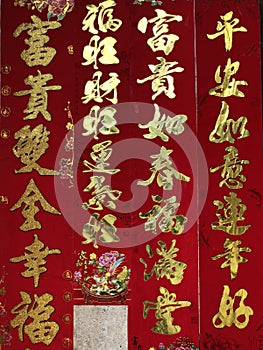 平安如意連年好
富貴如春福滿堂
福旺財旺運氣旺
富貴雙全幸福